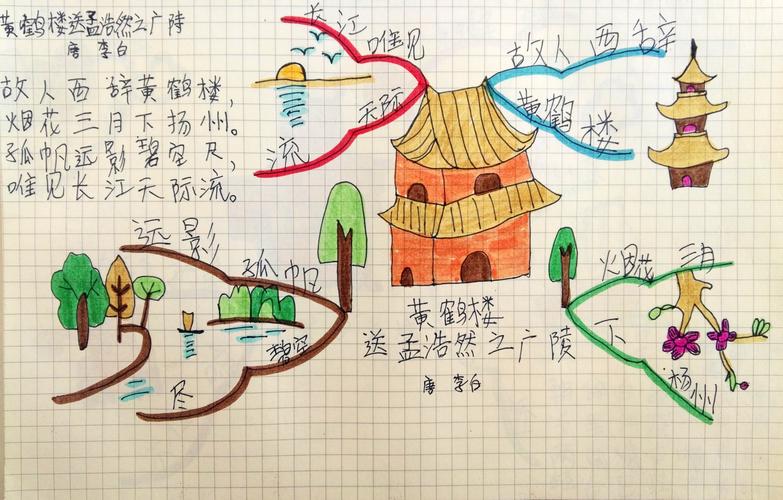 黄鹤楼送孟浩然之广陵
唐 李白
故人西辞黄鹤楼,
烟花三月下扬州。
孤帆远影碧空尽,
唯见长江天际流。
长江
唯见
天际
流
故人 西辞
黄鹤楼
远影
孤帆
碧空
尽
烟花 三月
下
扬州
黄鹤楼
送孟浩然之广陵
唐 李白